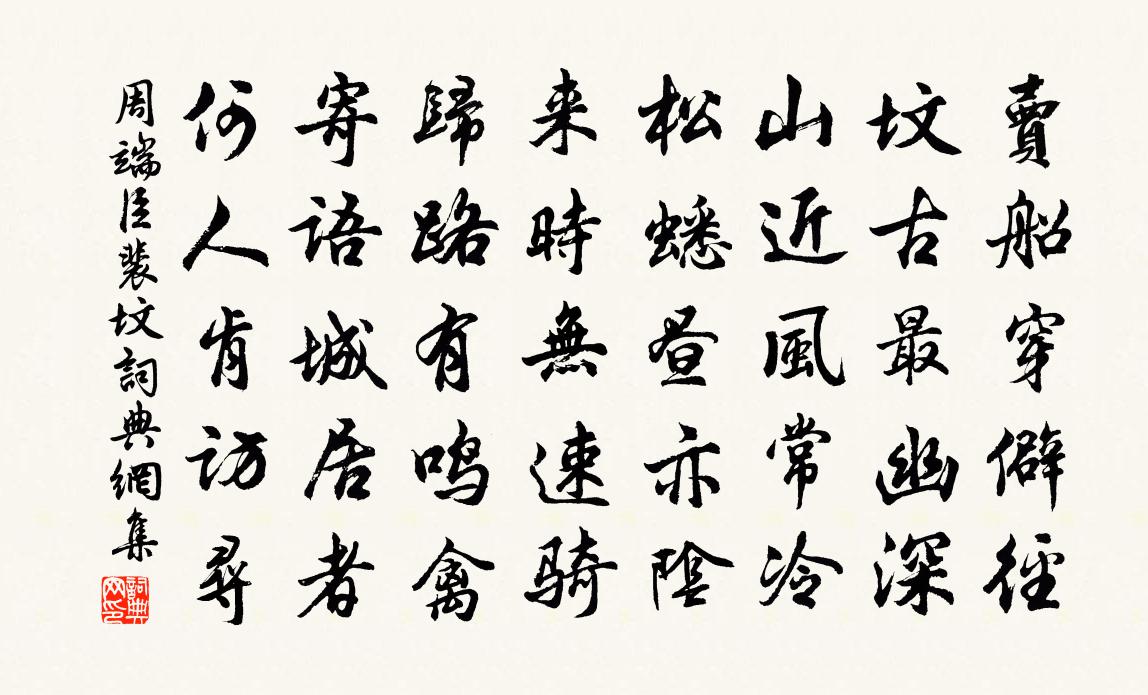 賣船穿僻徑
坟古最幽深
山近風常冷
松蟠昼亦陰
来時無速騎
歸路有鸣禽
寄語城居者
何人肯访尋
周端臣裴坟詞典網集
詞典网印